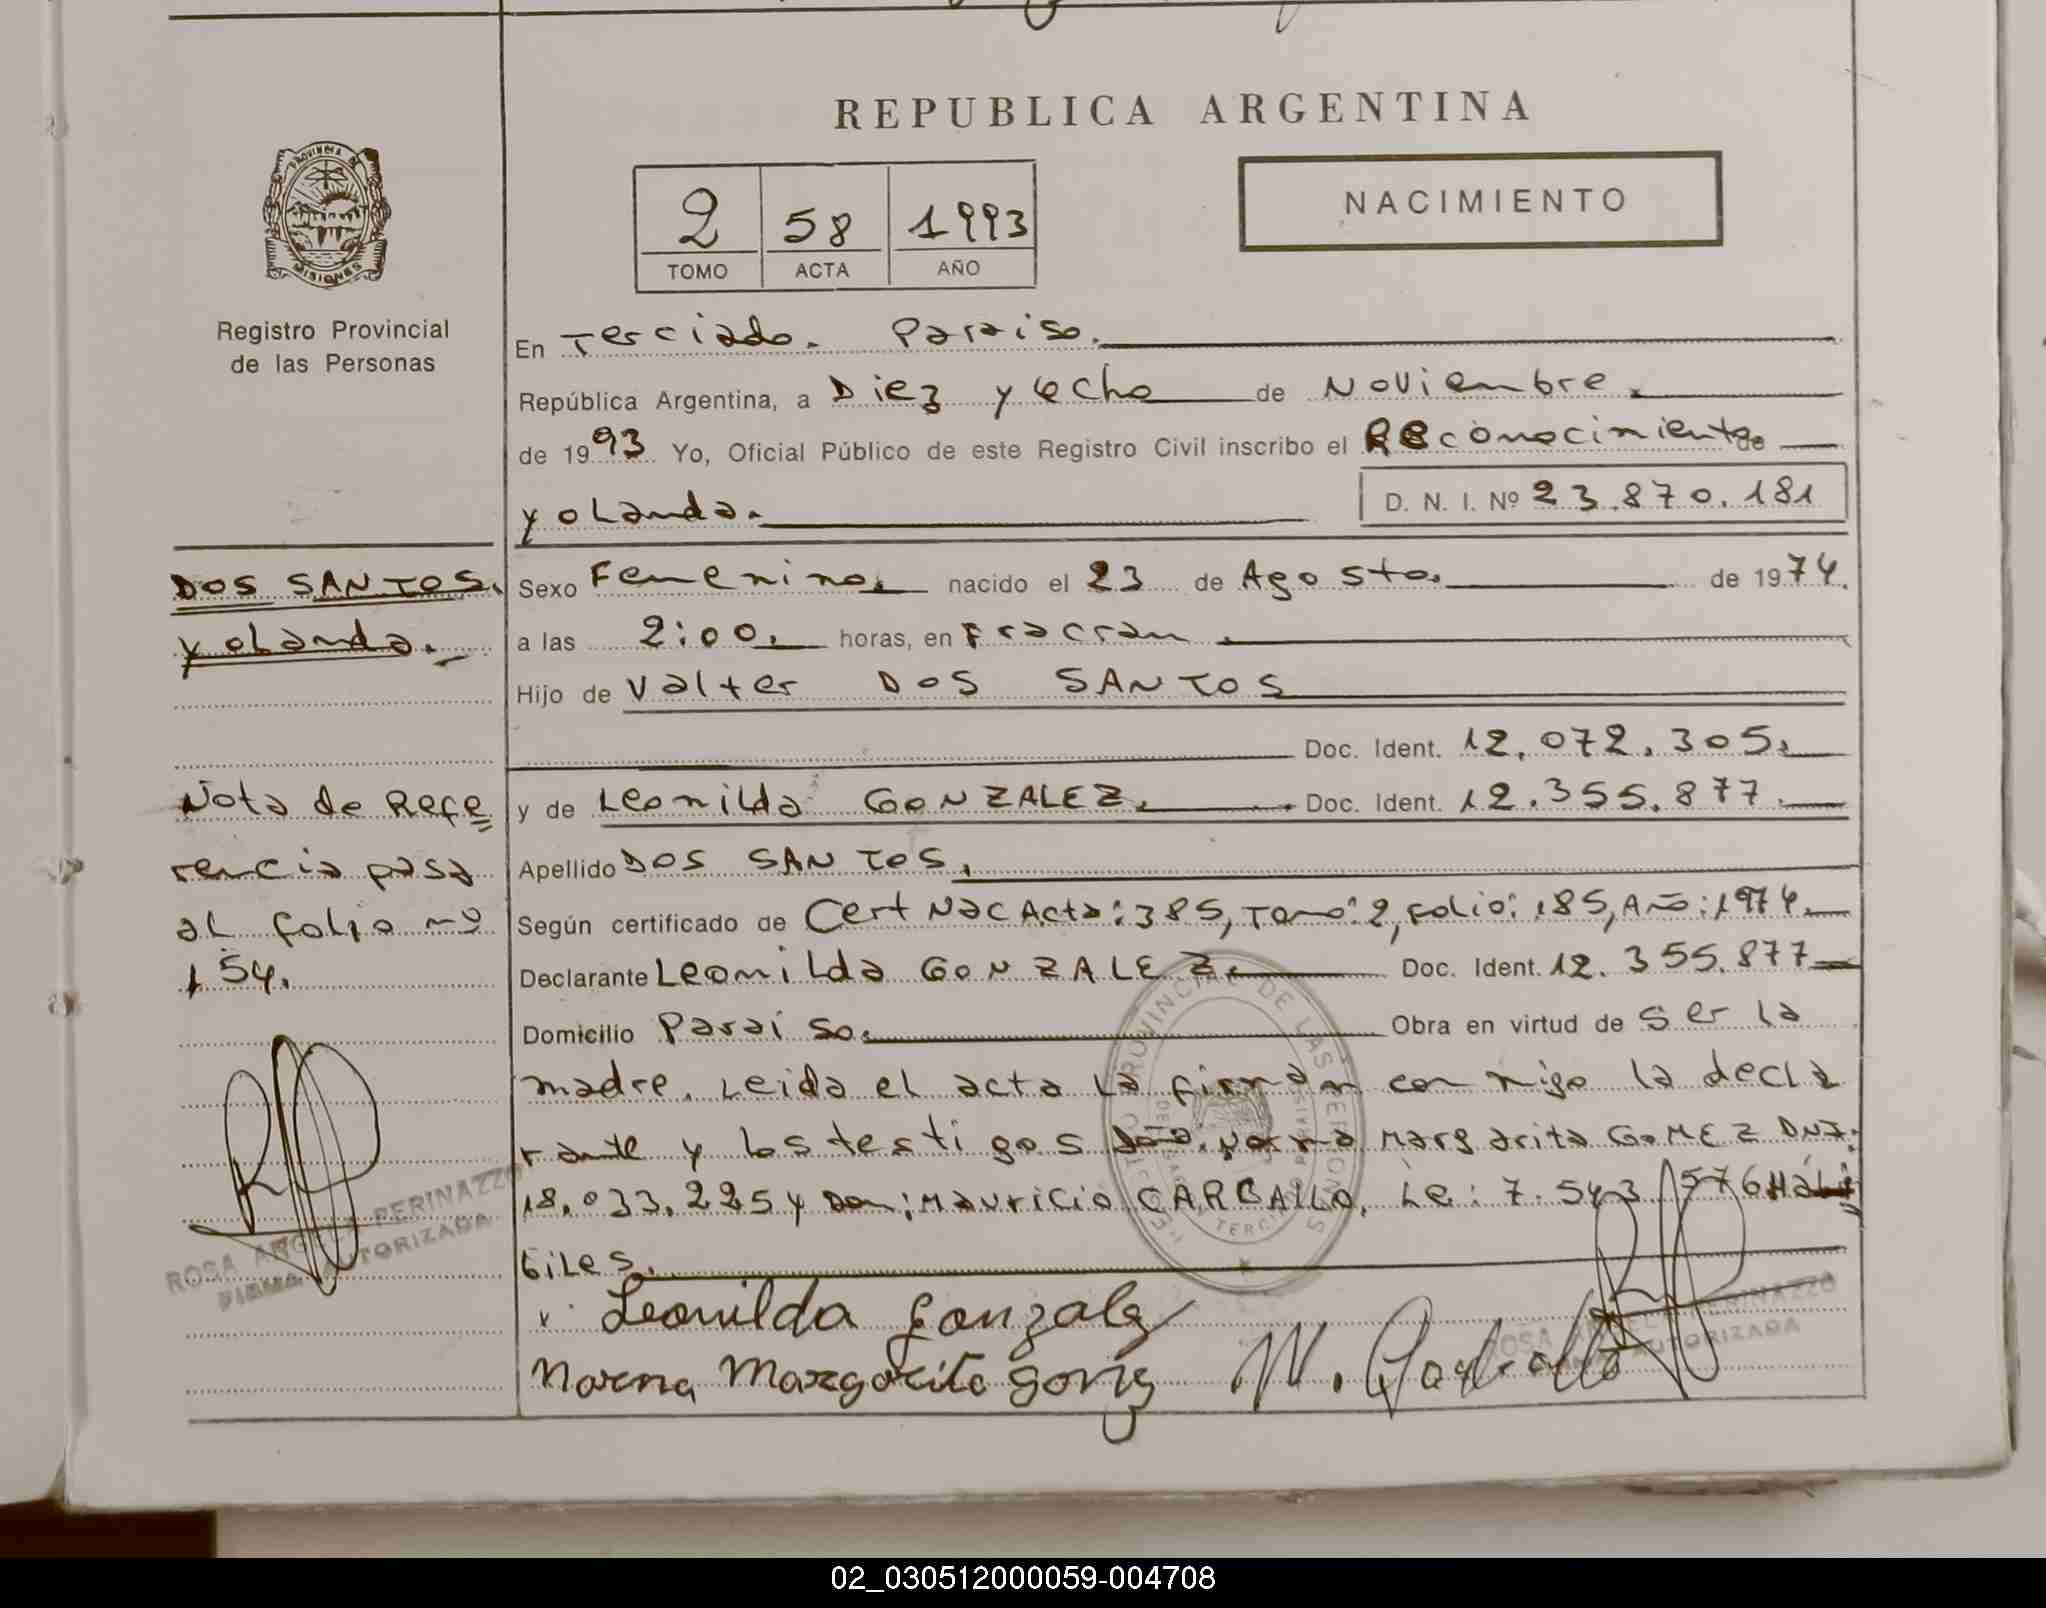 REPUBLICA ARGENTINA
PROVINCIA DE
MISIONES
Registro Provincial
de las Personas
2 58 1993
TOMO ACTA AÑO
NACIMIENTO
En Terciado. Paraiso.
República Argentina, a Diez y ocho de Noviembre.
de 1993 Yo, Oficial Público de este Registro Civil inscribo el Reconocimiento de
Yolanda. D. N. I. Nº 23.870.181
DOS SANTOS.
Yolanda.
Sexo Femenino. nacido el 23 de Agosto. de 1974.
a las 2:00. horas, en Fracran.
Hijo de Valter DOS SANTOS
Doc. Ident. 12.072.305.
y de Leonilda GONZALEZ. Doc. Ident. 12.355.877.
Apellido DOS SANTOS.
Según certificado de Cert Nac Acta: 385, Tomo: 2, Folio: 185, Año: 1974.
Declarante Leonilda GONZALEZ. Doc. Ident. 12.355.877
Domicilio Paraiso. Obra en virtud de ser la
madre. Leida el acta la firman con migo la decla
rante y los testigos Doña: Norma Margarita GOMEZ DNI:
18.033.225 y Don: Mauricio CARBALLO, Le: 7.543.576 Háli
biles.
Nota de Refe
rencia pasa
al folio nº
154.
ROSA ANGELA PERINAZZO
FIRMA AUTORIZADA
Leonilda Gonzalez
Norma Margarita Gomez M. Carballo
ROSA ANGELA PERINAZZO
FIRMA AUTORIZADA
02_030512000059-004708